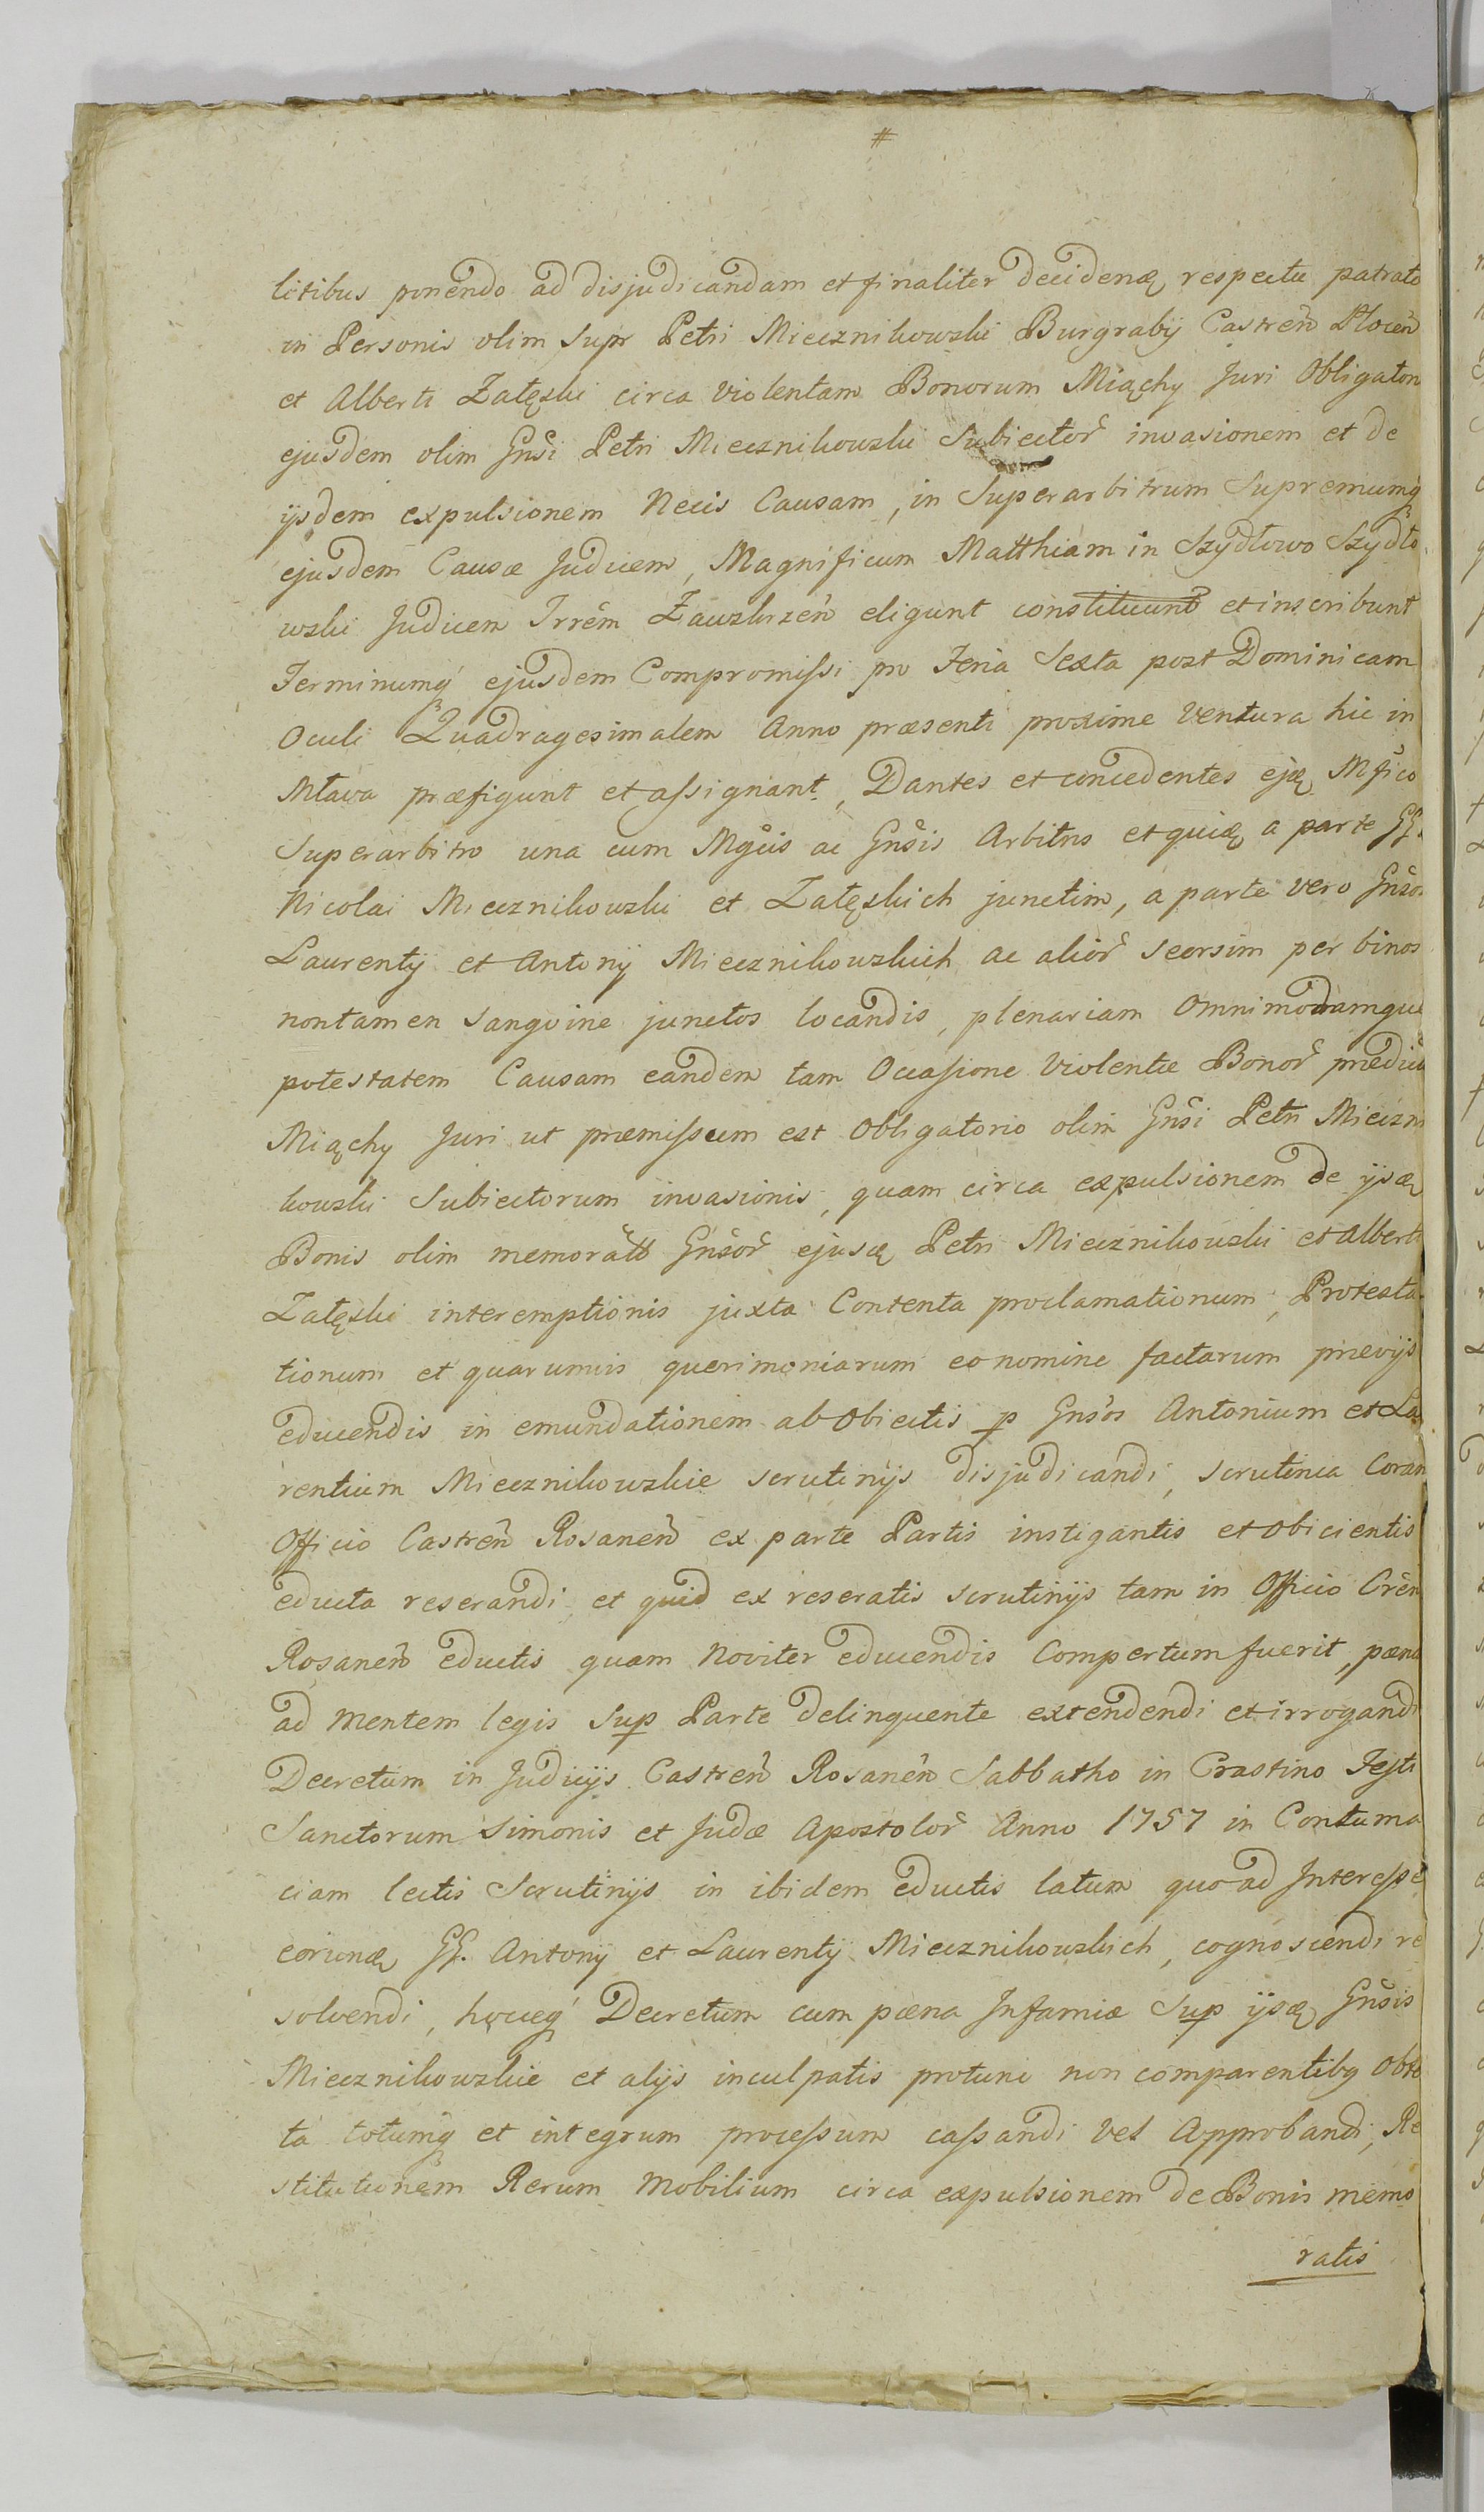 #
litibus ponendo ad disjudicandam et finaliter decideną respectu patrato
in Personis olim Supr Petri Miecznikowski Burgrabij Castren̄ Plocen̄
et Alberti Załęski circa violentam Bonorum Miąchy Juri Obligaton
ejusdem olim Gn̄si Petri Miecznikowski Subiector̄ invasionem et de
ijsdem expulsionem Necis Causam, in Superarbitrum Supremumq̨
ejusdem Causæ Judicem, Magnificum Matthiam in Szydłowo Szydło
wski Judicem Trrēm Zawskrzen̄ eligunt constituunt et inscribunt
Terminumq̨ ejusdem Compromissi pro Feria Sexta post Dominicam
Oculi Quadragesimalem Anno præsenti proxime Ventura hic in
Mława præfigunt et assignant, Dantes et concedentes eją Mfico
Superarbitro una cum Mgcis ac Gn̄sis Arbitris et quią a parte GG.
Nicolai Miecznikowski et Załęskich junctim, a parte vero Gn̄sor
Laurentij et Antonij Miecznikowskich ac alior̄ seorsim per binos
nontamen sanguine junctos locandis, plenariam Omnimodamque
potestatem Causam eandem tam Occasione Violentæ Bonor̄ prædict
Miąchy Juri ut præmissum est Obligatorio olim Gn̄si Petri Mieczni
kowski Subiectorum invasionis, quam circa expulsionem de ijsą
Bonis olim memoratt Gn̄sor̄ ejusą Petri Miecznikowski et Alberti
Załęski interemptionis juxta Contenta proclamationum, Protesta-
tionum et quarumvis querimoniarum eo nomine factarum prævijs
educendis in emundationem ab Obiectis p Gn̄sos Antonium et Lau
rentium Miecznikowskie scrutinijs disjudicandi, scrutinia Coram
Officio Castren̄ Rosanen̄ ex parte Partis instigantis et obicientis
educta reserandi et quid ex reseratis scrutinijs tam in Officio Cren̄
Rosanen̄ eductis quam Noviter educendis Compertum fuerit, pæna
ad mentem legis Sup Parte delinquente extendendi et irrogandi
Decretum in Judicijs Castren̄ Rosanen̄ Sabbatho in Crastino Festi
Sanctorum Simonis et Judæ Apostolor̄ Anno 1757 in Contuma
ciam lectis Scrutinijs in ibidem eductis latum quo ad Interesse
eorumą GG. Antonij et Laurentij Miecznikowskich, cognoscendi re
solvendi, hocceq̨ Decretum cum pæna Infamiæ Sup ijsą Gn̄sis
Miecznikowskie et alijs inculpatis protunc non comparentibq obten
ta totumq̨ et integrum processum cassandi vel Approbandi, Re
stitutionem Rerum Mobilium circa expulsionem de Bonis memo
ratis